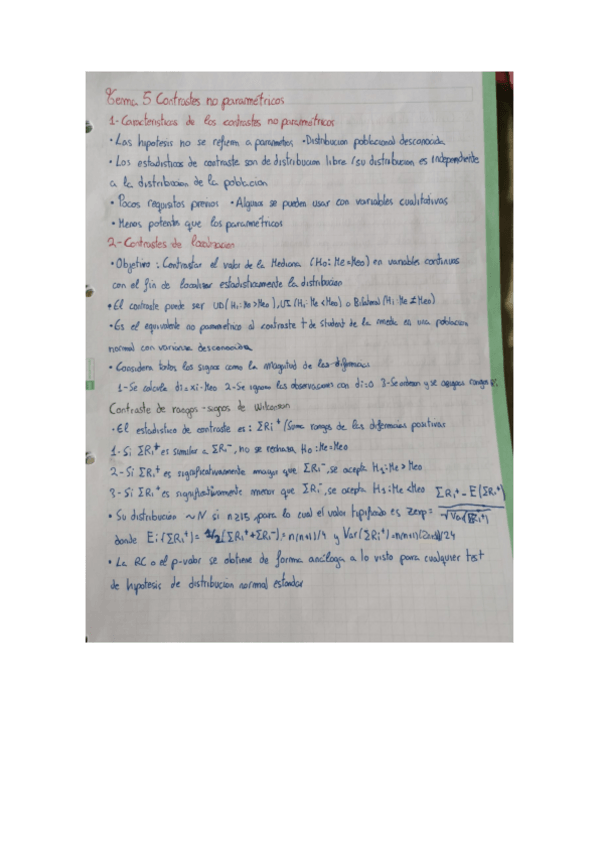 Tema 5 Contrastes no paramétricos
1-Características de los contrastes no paramétricos
• Las hipotesis no se refieren a parametros • Distribucion poblacional desconocida
• Los estadisticos de contraste son de distribucion libre /su distribucion es independiente
a la distribucion de la poblacion
• Pocos requisitos previos • Algunos se pueden usar con variables cualitativas
• Menos potentes que los paramétricos
2-Contrastes de localizacion
• Objetivo: Contrastar el valor de la Mediana (H0: Me=Me0) en variables continuas
con el fin de localizar estadisticamente la distribucion
• El contraste puede ser UD(H1: Me>Me0), UI(H1: Me<Me0) o Bilateral (H1: Me≠Me0)
• Es el equivalente no parametrico al contraste t de student de la media en una poblacion
normal con varianza desconocida
• Considera tanto los signos como la magnitud de las diferencias
1-Se calcula di=xi-Me0 2-Se ignoran las observaciones con di=0 3-Se ordenan y se asignan rangos Ri
Contraste de rangos-signos de Wilcoxon
• El estadistico de contraste es: ΣRi+ /Suma rangos de las diferencias positivas
1-Si ΣRi+ es similar a ΣRi-, no se rechaza H0: Me=Me0
2-Si ΣRi+ es significativamente mayor que ΣRi-, se acepta H1: Me>Me0
3-Si ΣRi+ es significativamente menor que ΣRi-, se acepta H1: Me<Me0
• Su distribución ~N si n≥15, para lo cual el valor tipificado es zexp= ΣRi+ - E(ΣRi+) / √Var(ΣRi+)
donde E(ΣRi+)= 1/2(ΣRi+ + ΣRi-)=n(n+1)/4 y Var(ΣRi+)=n(n+1)(2n+1)/24
• La RC o el p-valor se obtiene de forma análoga a lo visto para cualquier test
de hipotesis de distribucion normal estandar